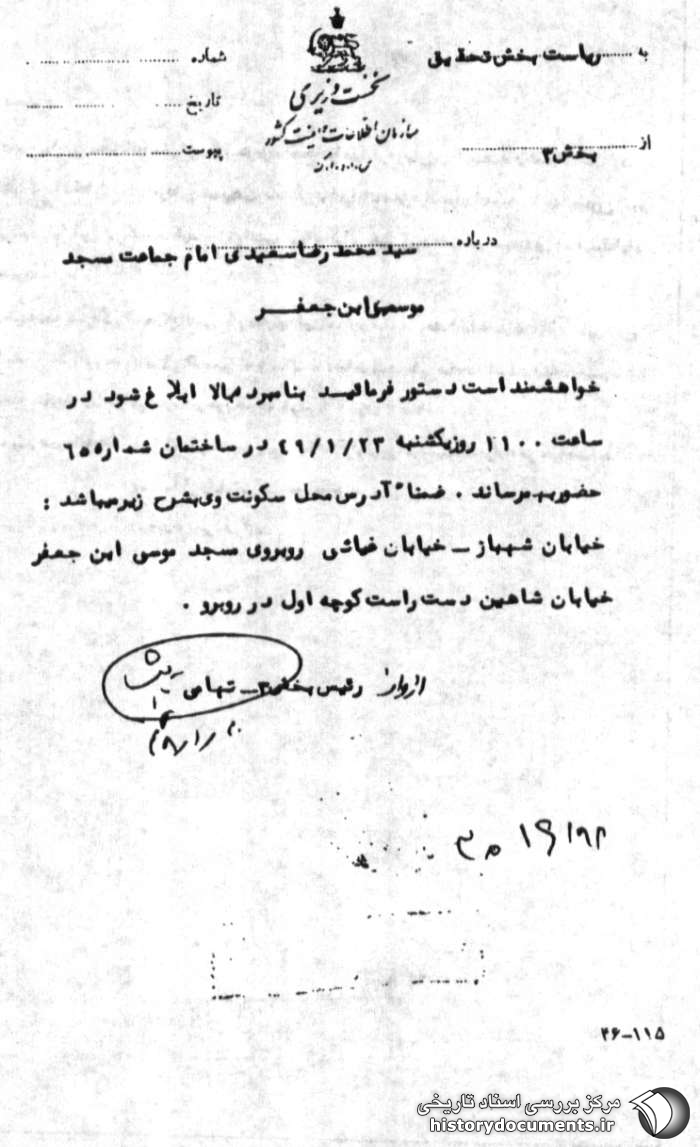 به ریاست بخش تحقیق
از بخش ۳
نخست وزیری
سازمان اطلاعات و امنیت کشور
س.ا.و.ا.ک
شماره
تاریخ
پیوست
درباره سید محمد رضا سعیدی امام جماعت مسجد
موسی ابن جعفر
خواهشمند است دستور فرمائید بنامبرده بالا ابلاغ شود در
ساعت ۱۱۰۰ روز یکشنبه ۴۹/۱/۲۳ در ساختمان شماره ۶۵۵
حضور بهمرساند . ضمناً آدرس محل سکونت وی بشرح زیر میباشد :
خیابان شهباز – خیابان غیاثی روبروی مسجد موسی ابن جعفر
خیابان شاهین دست راست کوچه اول در روبرو .
رئیس بخش ۳ – تهامی
۴۶–۱۱۵
مرکز بررسی اسناد تاریخی
historydocuments.ir